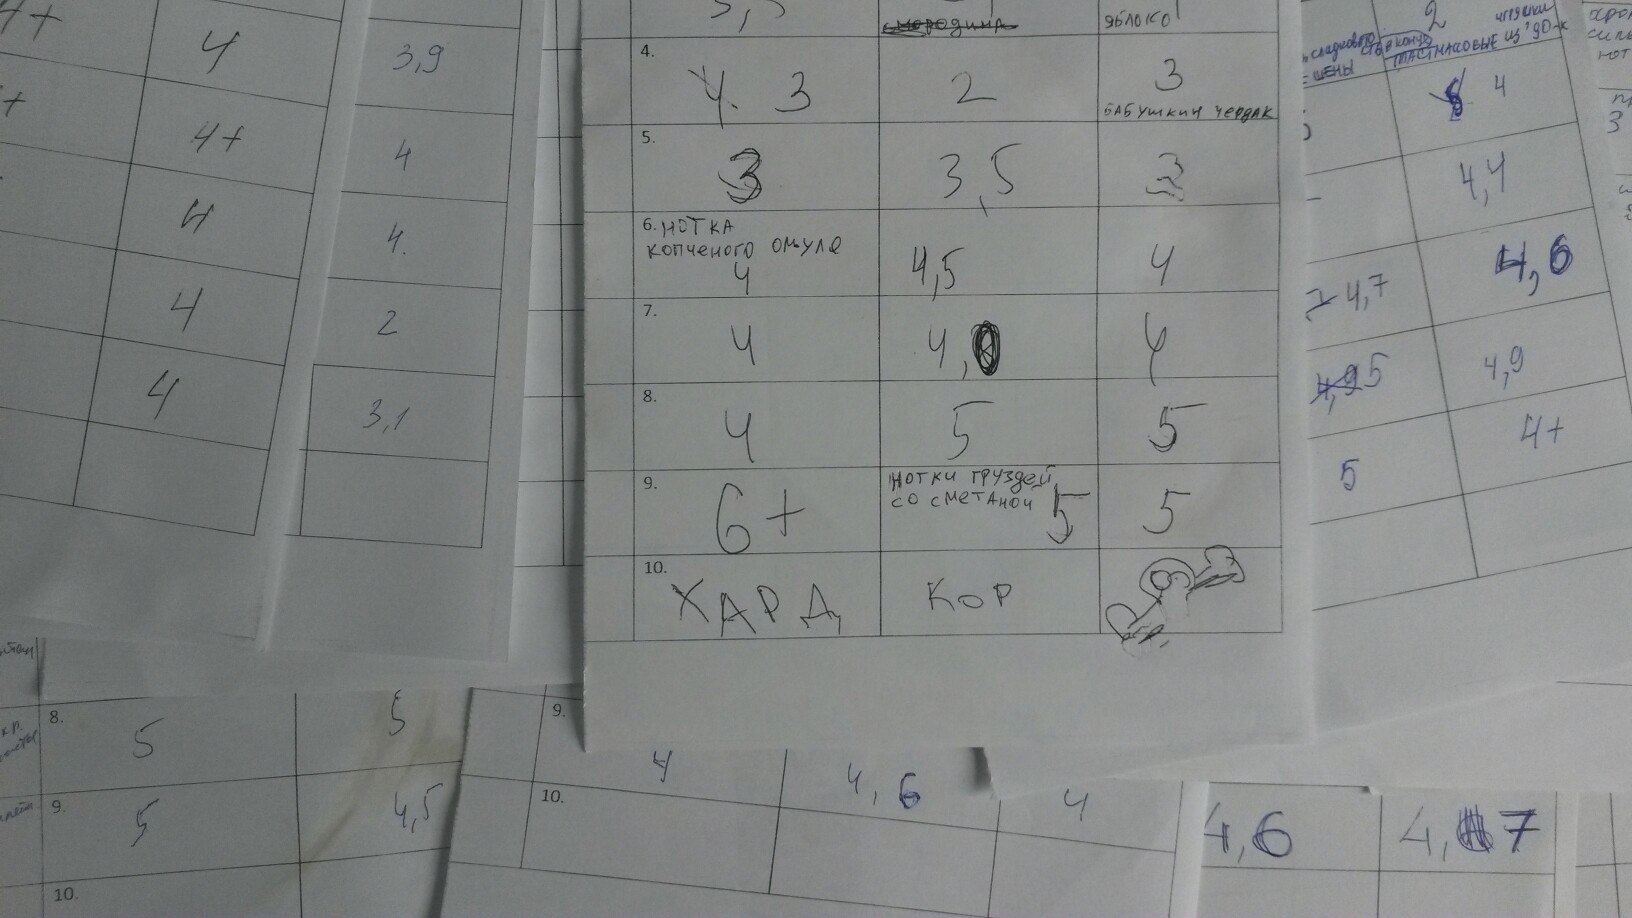 4
3,9
4+
4
4
4.
4
2
4
3,1
смородина
ЯБЛОКО
4.
4. 3
2
3
БАБУШКИН ЧЕРДАК
5.
3
3,5
3
6. НОТКА
КОПЧЕНОГО ОМУЛЯ
4
4,5
4
7.
4
4,0
4
8.
4
5
5
9.
6+
НОТКИ ГРУЗДЕЙ
СО СМЕТАНОЙ
5
5
10.
ХАРД
КОР
2
ЦЕНЫ
ПЛАСТМАССОВЫЕ ИЗ 90-х
4
4,4
4,7
4,6
5
4,9
5
4+
3
8.
5
5
9.
5
4,5
10.
9.
4
4,6
4
10.
4,6
4,7